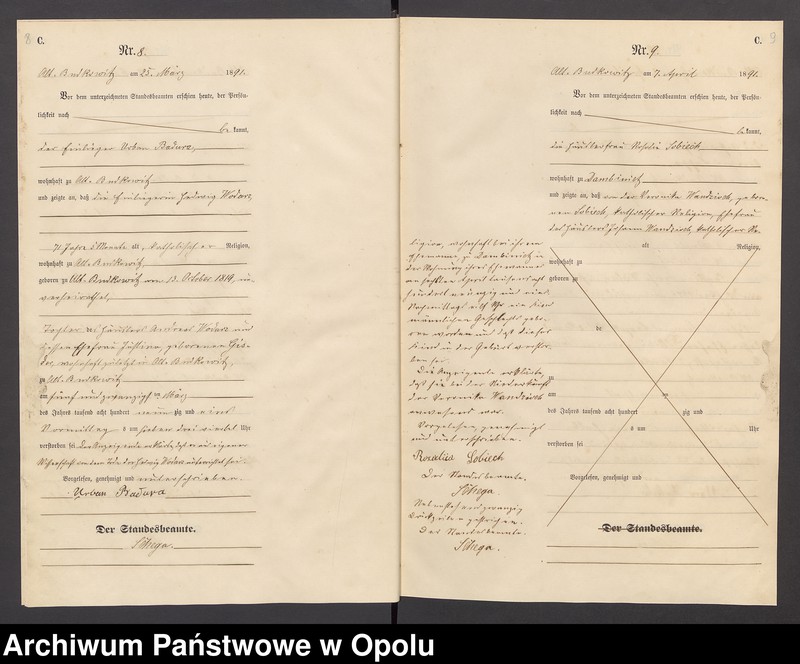 8 C.
Nr. 8.
Alt. Budkowitz am 25. März 1891.
Vor dem unterzeichneten Standesbeamten erschien heute, der Persön-
lichkeit nach
be kannt,
der Einlieger Urban Badura,
wohnhaft zu Alt. Budkowitz
und zeigte an, daß die Einliegerin Hedwig Wodarz,
71 Jahre 5 Monate alt, katholischer Religion,
wohnhaft zu Alt. Budkowitz,
geboren zu Alt. Budkowitz am 13. October 1819, un-
verheirathet,
Tochter des Häuslers Andreas Wodarz und
dessen Ehefrau Justina, geborenen
wohnhaft zuletzt in Alt. Budkowitz,
zu Alt. Budkowitz
am fünf und zwanzigsten März
des Jahres tausend acht hundert neun zig und eins
Vormittag s um sieben drei viertel Uhr
verstorben sei. Der Anzeigende erklärte, daß er aus eigener
Wissenschaft von dem Tode der Hedwig Wodarz unterrichtet sei.
Vorgelesen, genehmigt und unterschrieben.
Urban Badura
Der Standesbeamte.
C. 9
Nr. 9.
Alt. Budkowitz am 7. April 1891.
Vor dem unterzeichneten Standesbeamten erschien heute, der Persön-
lichkeit nach
be kannt,
die Häuslerfrau Rosalia Sobiech
wohnhaft zu Dambinietz
und zeigte an, daß von der Veronika Wandzioch, gebor-
nen Sobiech, katholischer Religion, Ehefrau
des Häuslers Johann Wandzioch, katholischer Re-
ligion, wohnhaft bei ihrem
Ehemanne, zu Dambinietz in
der Wohnung ihres Ehemannes
am sechsten April tausend acht
hundert neunzig und eins
Nachmittags acht Uhr ein Kind
männlichen Geschlechts gebo-
ren worden und daß dieses
Kind in der Geburt verstor-
ben sei.
Die Anzeigende erklärte,
daß sie bei der Niederkunft
der Veronika Wandzioch
anwesend war.
Vorgelesen, genehmigt
und unterschrieben.
Rozalia Sobiech
Der Standesbeamte.
Nebenstehend zwanzig
Druckzeilen gestrichen.
Der Standesbeamte.
alt Religion,
wohnhaft zu
geboren zu
de
zu
am
des Jahres tausend acht hundert zig und
s um Uhr
verstorben sei
Vorgelesen, genehmigt und
Der Standesbeamte.
Archiwum Państwowe w Opolu